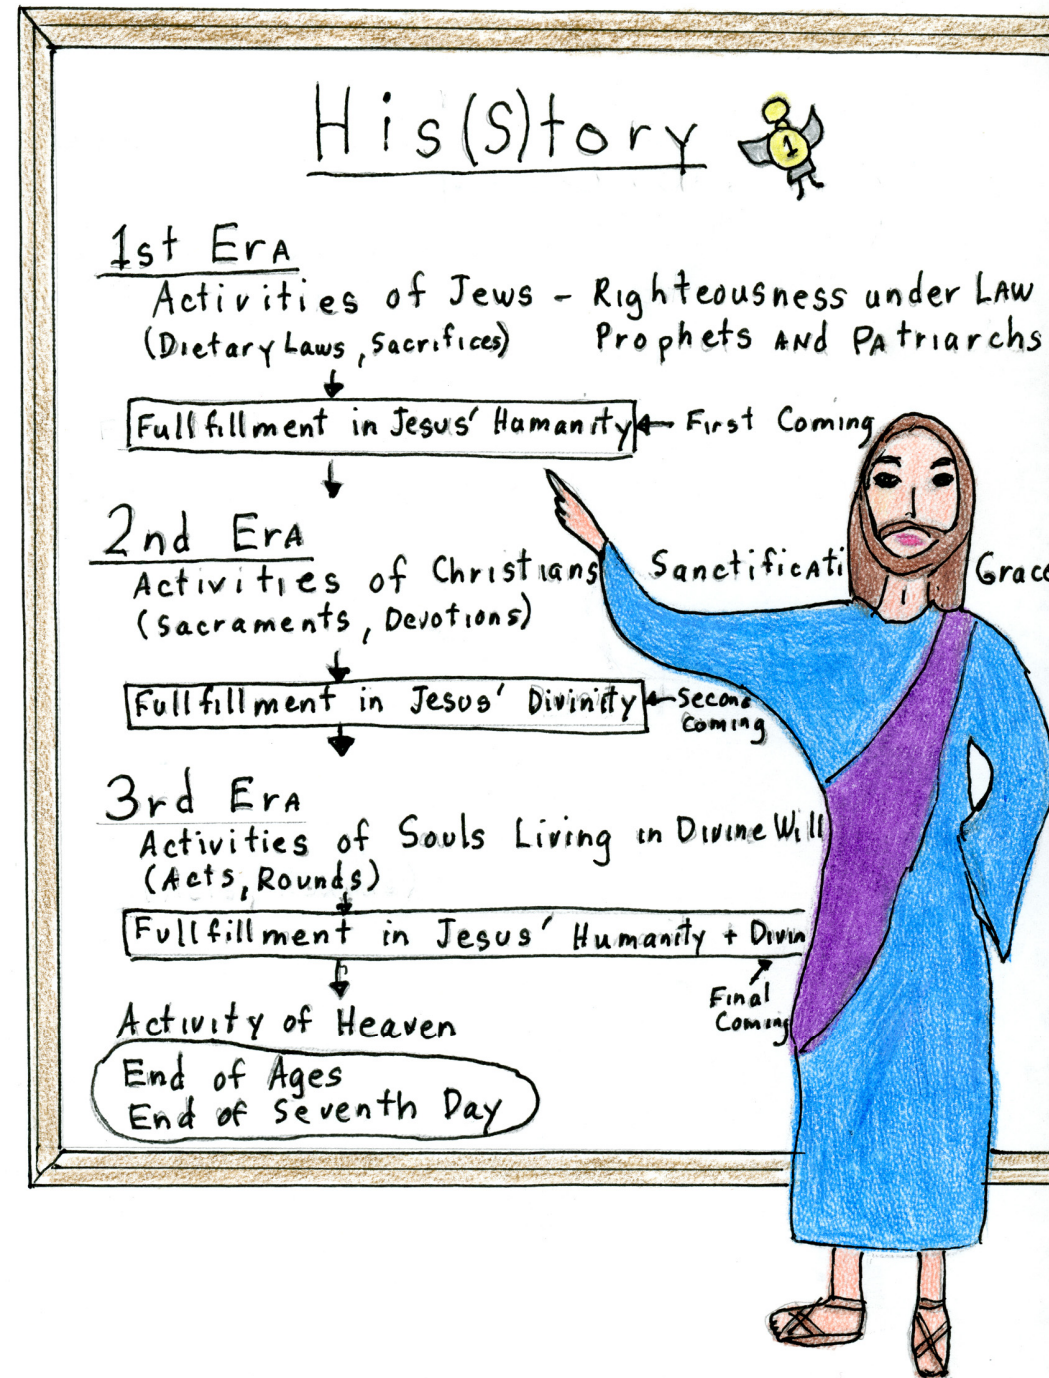 His(S)tory
1
1st Era
Activities of Jews - Righteousness under Law
(Dietary Laws, Sacrifices) Prophets and Patriarchs
Fullfillment in Jesus' Humanity First Coming
2nd Era
Activities of Christians Sanctificati Grace
(Sacraments, Devotions)
Fullfillment in Jesus' Divinity Second
Coming
3rd Era
Activities of Souls Living in Divine Will
(Acts, Rounds)
Fullfillment in Jesus' Humanity + Divin
Final
Coming
Activity of Heaven
End of Ages
End of Seventh Day